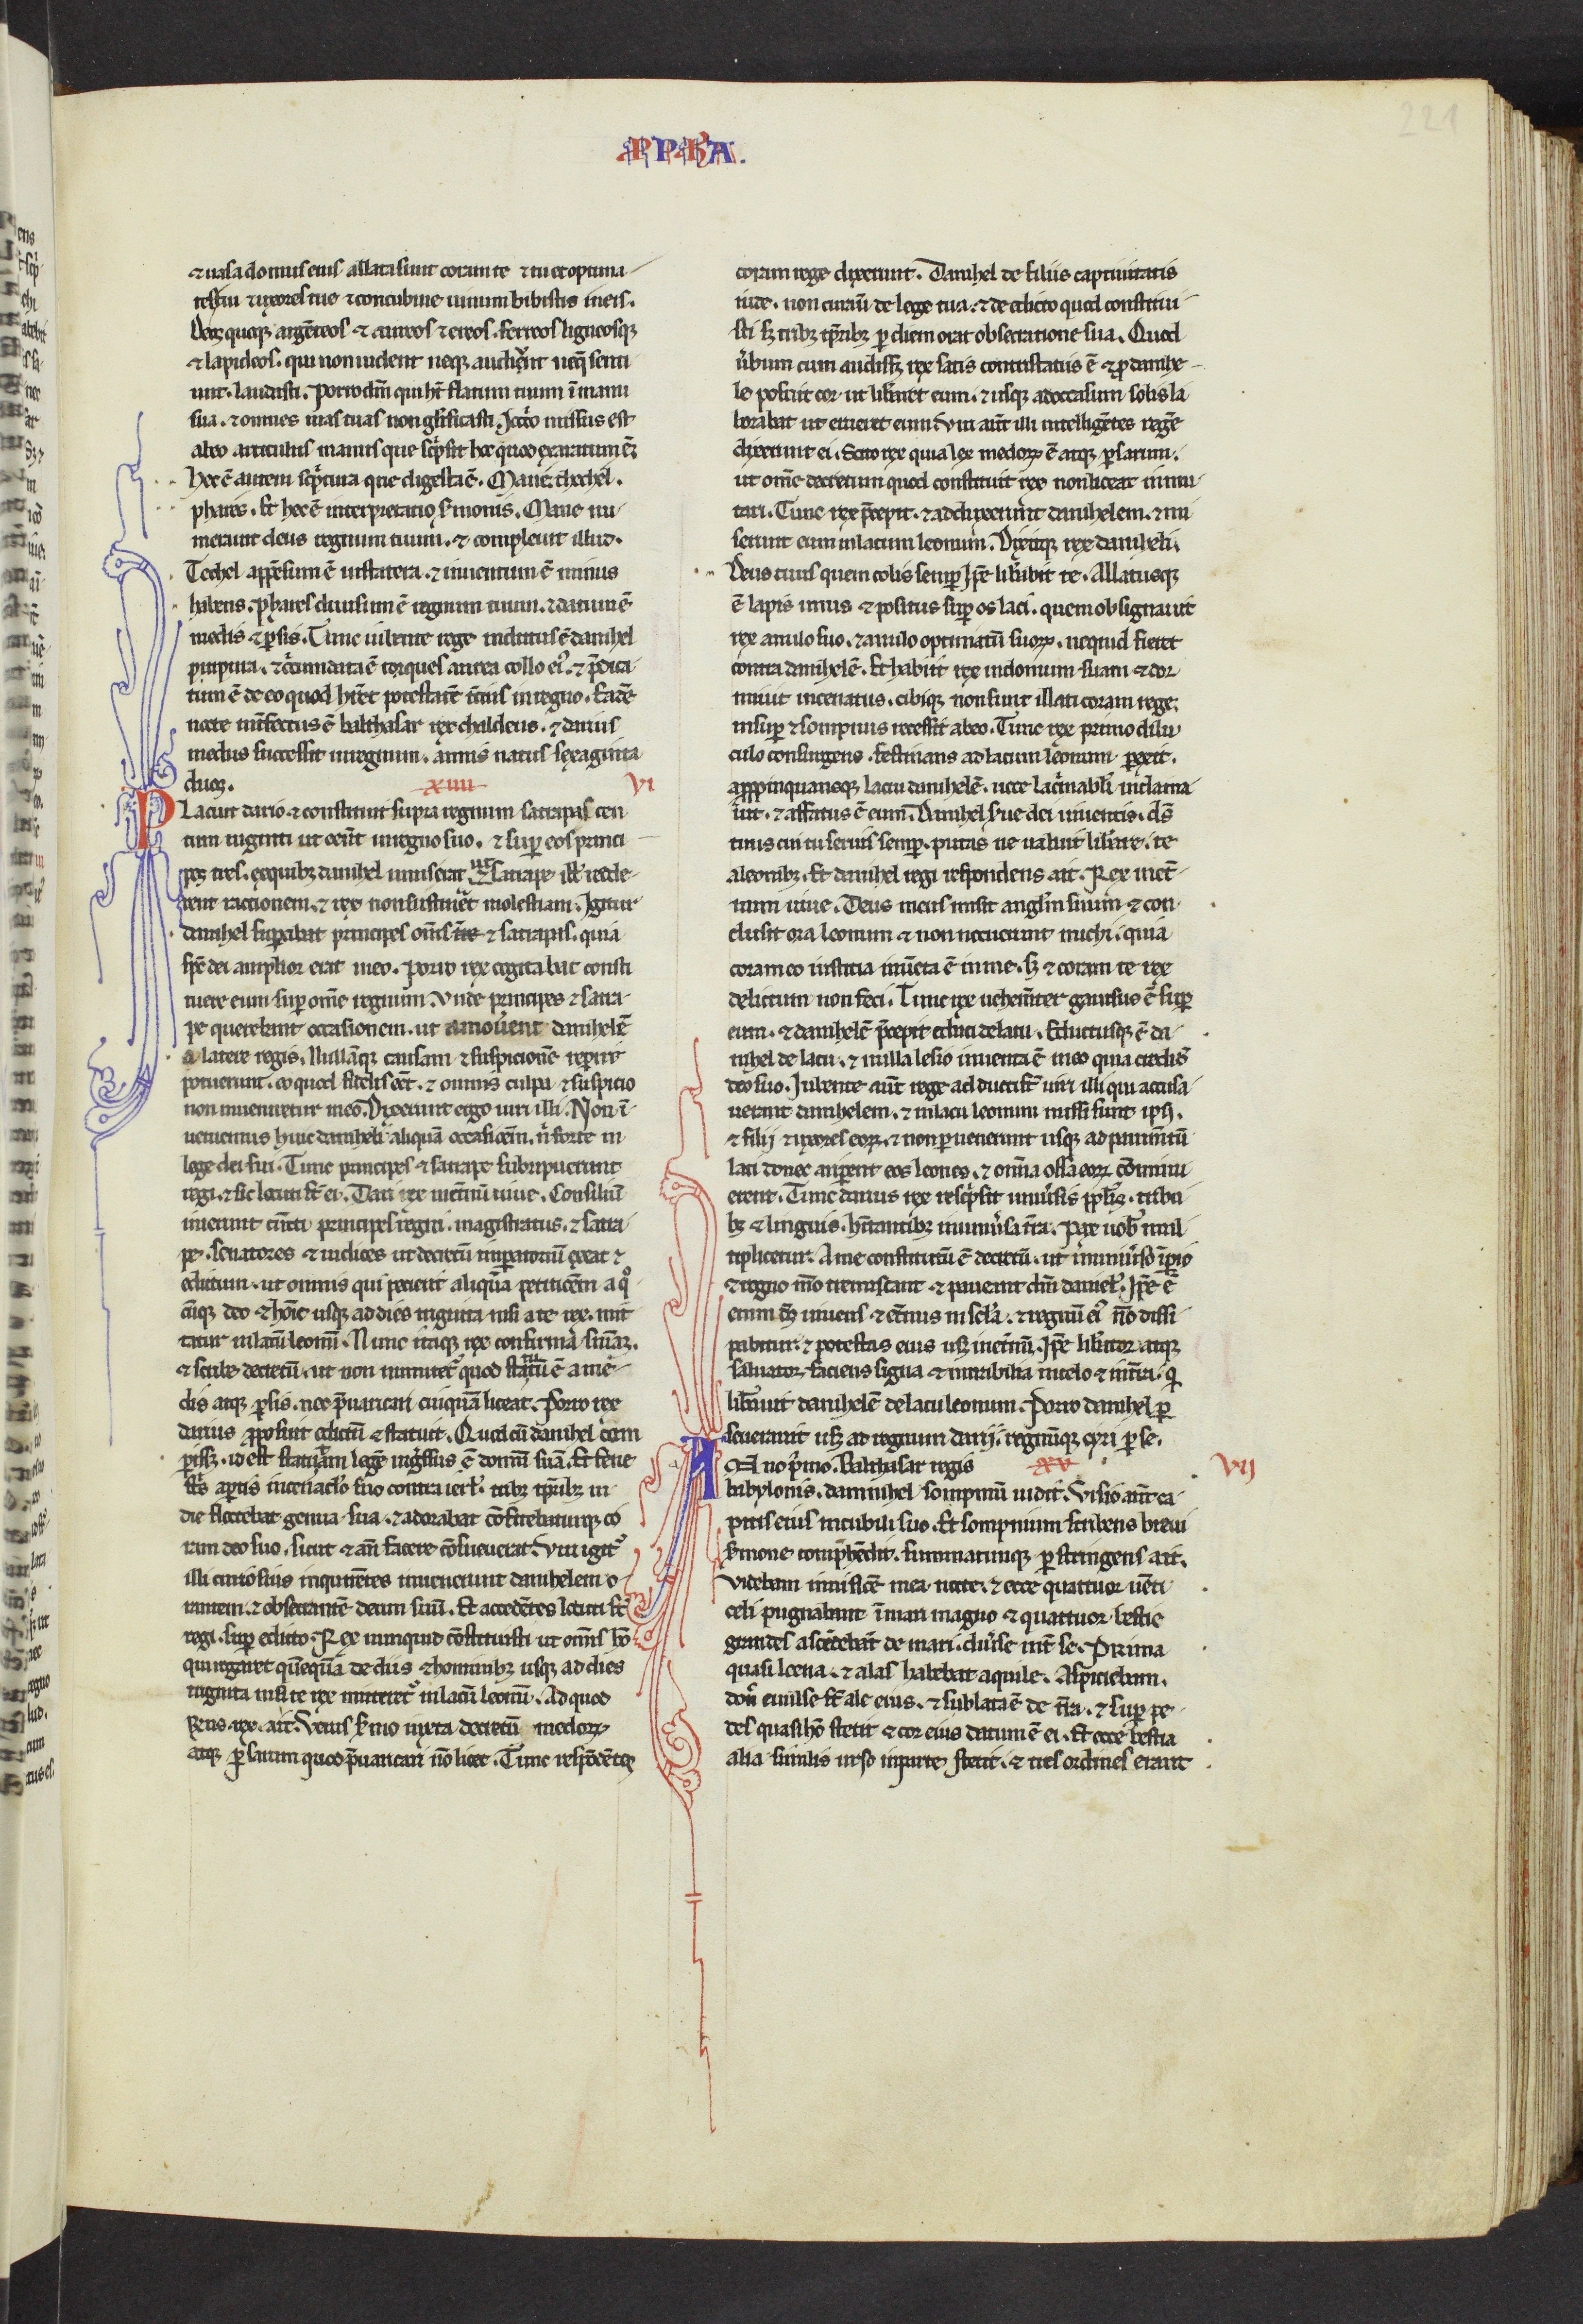 PPHA.
221
⁊ uasa domus eius allata sunt coram te ⁊ tu et optima-
tes tui ⁊ uxores tue ⁊ concubine uinum bibistis in eis.
Deos quoqꝫ argēteos ⁊ aureos ⁊ ereos. ferreos ligneosqꝫ
⁊ lapideos. qui non uident neqꝫ audiūt neqꝫ senti
unt. laudasti. Porro dm̄ qui ht̄ flatum tuum ī manu
sua. ⁊ omnes uias tuas non glificasti. Iccͦo missus est
ab eo articulus manus que scͥpsit hoc quod exaratum ē.
Hec ē autem scͥptura que digesta ē. Mane thechel.
phares. Et hec ē interpretatio s̄monis. Mane nu-
merauit deus regnum tuum. ⁊ compleuit illud.
Techel appēsum ē in statera. ⁊ inuentum ē minus
habens. phares diuisum ē regnum tuum. ⁊ datum ē
medis ⁊ ꝑsis. Tunc iubente rege indutus ē danihel
purpura. ⁊ cͥcumdata ē torques aurea collo eiꝰ. ⁊ p̄dica-
tum ē de eo quod hr̄et potestatē t̄cius in regno. Eadē
nocte int̄fectus ē balthasar rex chaldeus. ⁊ darius
medus successit in regnum. annis natus sexaginta
duos. xiiii VI
Placuit dario ⁊ constituit supra regnum satrapas cen
tum uiginti ut eēnt in regno suo. ⁊ suꝑ eos princi-
pes tres. ex quibꝫ danihel unus erat ut satrape ill' redde-
rent rationem. ⁊ rex non sustin̄et molestiam. Igitur
danihel suꝑabat principes om̄s ⁊ satrapas. quia
sp̄c dei amplior erat in eo. Porro rex cogitabat consti
tuere eum suꝑ om̄e regnum. Vnde principes ⁊ satra-
pe querebant occasionem. ut amouerent danihelē
a latere regis. Nullāqꝫ causam ⁊ suspicionē reperire
potuerunt. eo quod fidelis eēt. ⁊ omnis culpa ⁊ suspicio
non inueniretur in eo. Dixerunt ergo uiri illi. Non ī-
ueniemus huic daniheli aliquā occasiōem. n̄ forte in
lege dei sui. Tunc principes ⁊ satrape subripuerunt
regi. ⁊ sic locuti st̄ ei. Dari rex in et̄nū uiue. Consiliū
inierunt cūcti principes regni. magistratus. ⁊ satra-
pe. senatores ⁊ iudices ut decretū imꝑatoriū exeat ⁊
edictum. ut omnis qui petierit aliquā petitiōem a qͦ
cūqꝫ deo ⁊ hoīe usqꝫ ad dies triginta nisi a te rex. mit
tatur in lacū leonū. Nunc itaqꝫ rex confirma sn̄iaꝫ.
⁊ scribe decretū. ut non inmutet̉ quod statutū ē a me-
dis atqꝫ ꝑsis. nec p̄uaricari cuiquā liceat. Porro rex
darius ꝓposuit edictū ⁊ statuit. Quod cū danihel com
perissꝫ. id est statutam legē ingͤssus ē domū suā. Et fene
stͥs aꝑtis in cenaclo suo contra ierlm̄. tribꝫ tp̄ribꝫ in
die flectebat genua sua. ⁊ adorabat cōfitebaturqꝫ co
ram deo suo. sicut ⁊ an̄ facere cōsueuerat. Viri igit̉
illi curiosius inquirētes inuenerunt danihelem o-
rantem. ⁊ obsecrantē deum suū. Et accedētes locuti st̄
regi. suꝑ edicto. Rex nunquid cōstituisti ut om̄is hō
qui rogaret quēquā de diis ⁊ hominibꝫ usqꝫ ad dies
triginta nisi te rex mitteret̉ in lacū leonū. Ad quos
rex. ait. Verus s̄mo iuxta decretū medoꝝ
atqꝫ ꝑsarum quod p̄uaricari nō licet. Tunc respōdētes
coram rege dixerunt. Danihel de filiis captiuitatis
iude. non curauit de lege tua. ⁊ de edicto quod constitui-
sti sꝫ tribꝫ tp̄ribꝫ ꝑ diem orat obsecratione sua. Quod
u̇bum cum audissꝫ rex satis contristatus ē ⁊ ꝓ danihe-
le posuit cor ut lib̄aret eum. ⁊ usqꝫ ad occasum solis la
borabat ut erueret eum. Viri aūt illi intelligētes regē
dixerunt ei. Scito rex quia lex medoꝝ ē atqꝫ ꝑsarum.
ut om̄e decretum quod constituit rex non liceat inmu-
tari. Tunc rex p̄cepit. ⁊ adduxerunt danihelem. ⁊ mi
serunt eum in lacum leonum. Dixitqꝫ rex daniheli.
Deus tuus quem colis semꝑ ip̄e lib̄abit te. Allatusqꝫ
ē lapis unus ⁊ positus suꝑ os laci. quem obsignauit
rex anulo suo. ⁊ anulo optimatū suoꝝ. ne quid fieret
contra danihelē. Et habiit rex in domum suam ⁊ dor
miuit incenatus. cibiqꝫ non sunt illati coram rege.
insuꝑ ⁊ sompnus recessit ab eo. Tunc rex primo dilu
culo consurgens. festinans ad lacum leonum ꝑrexit.
appropinquansqꝫ lacu danihelē. uoce lacͥmabili inclama
uit. ⁊ affatus ē eum. Danihel s̄ue dei uiuentis. ds̄
tuus cui tu seruis semꝑ. putas ne ualuit lib̄are te
a leonibꝫ. Et danihel regi respondens ait. Rex in et̄-
num uiue. Deus meus misit angl'm suum ⁊ con-
clusit ora leonum ⁊ non nocuerunt michi. quia
coram eo iustitia inuēta ē in me. sꝫ ⁊ coram te rex
delictum non feci. Tunc rex uehem̄ter gauisus ē suꝑ
eum. ⁊ danihelē p̄cepit educi de lacu. Eductusqꝫ ē da-
nihel de lacu. ⁊ nulla lesio inuenta ē in eo quia credidit
deo suo. Iubente aūt rege adducti st̄ uiri illi qui accusa-
uerant danihelem. ⁊ in lacu leonum missi sunt ipsi.
⁊ filii ⁊ uxores eoꝝ. ⁊ non ꝑuenerunt usqꝫ ad pauim̄tū
laci donec ariperent eos leones. ⁊ om̄ia ossa eoꝝ cōminu
erent. Tunc darius rex rescͥpsit uniuersis ppl'is. tribu
bꝫ ⁊ linguis. hītantibꝫ in uniu̇sa t̄ra. Pax uob' mul-
tiplicetur. A me constitutū ē decretū. ut in uniu̇so īꝑio
⁊ regno meo tremiscant ⁊ paueant dm̄ daniel'. Ip̄e ē
enim ds̄ uiuens ⁊ et̄nus in sc̄la. ⁊ regnū eiꝰ nō dissi
pabitur. ⁊ potestas eius usqꝫ in et̄nū. Ip̄e lib̄ator atqꝫ
saluator faciens signa ⁊ mirabilia in celo ⁊ in t̄ra. qͥ
lib̄auit danihelē de lacu leonum. Porro danihel ꝑ
seuerauit usqꝫ ad regnum darii. regnūqꝫ cyri ꝑse.
Anno p̄mo. Balthasar regis xv VII
babylonis. dannihel sompniū uidit. Visio aūt ca-
pitis eius in cubili suo. Et sompnium scribens breui
s̄mone comp̄hēdit. summatimqꝫ ꝑstringens ait.
Videbam in uisiōe mea nocte. ⁊ ecce quattuor uēti
celi pugnabant ī mari magno ⁊ quattuor bestie
grandes ascēdebāt de mari. diu̇se int̄ se. Prima
quasi leena. ⁊ alas habebat aquile. Asp̄iciebam.
don̄ euulse st̄ ale eius. ⁊ sublata ē de t̄ra. ⁊ suꝑ pe-
des quasi hō stetit ⁊ cor eius datum ē ei. Et ecce bestia
alia similis urso in parte stetit. ⁊ tres ordines erant